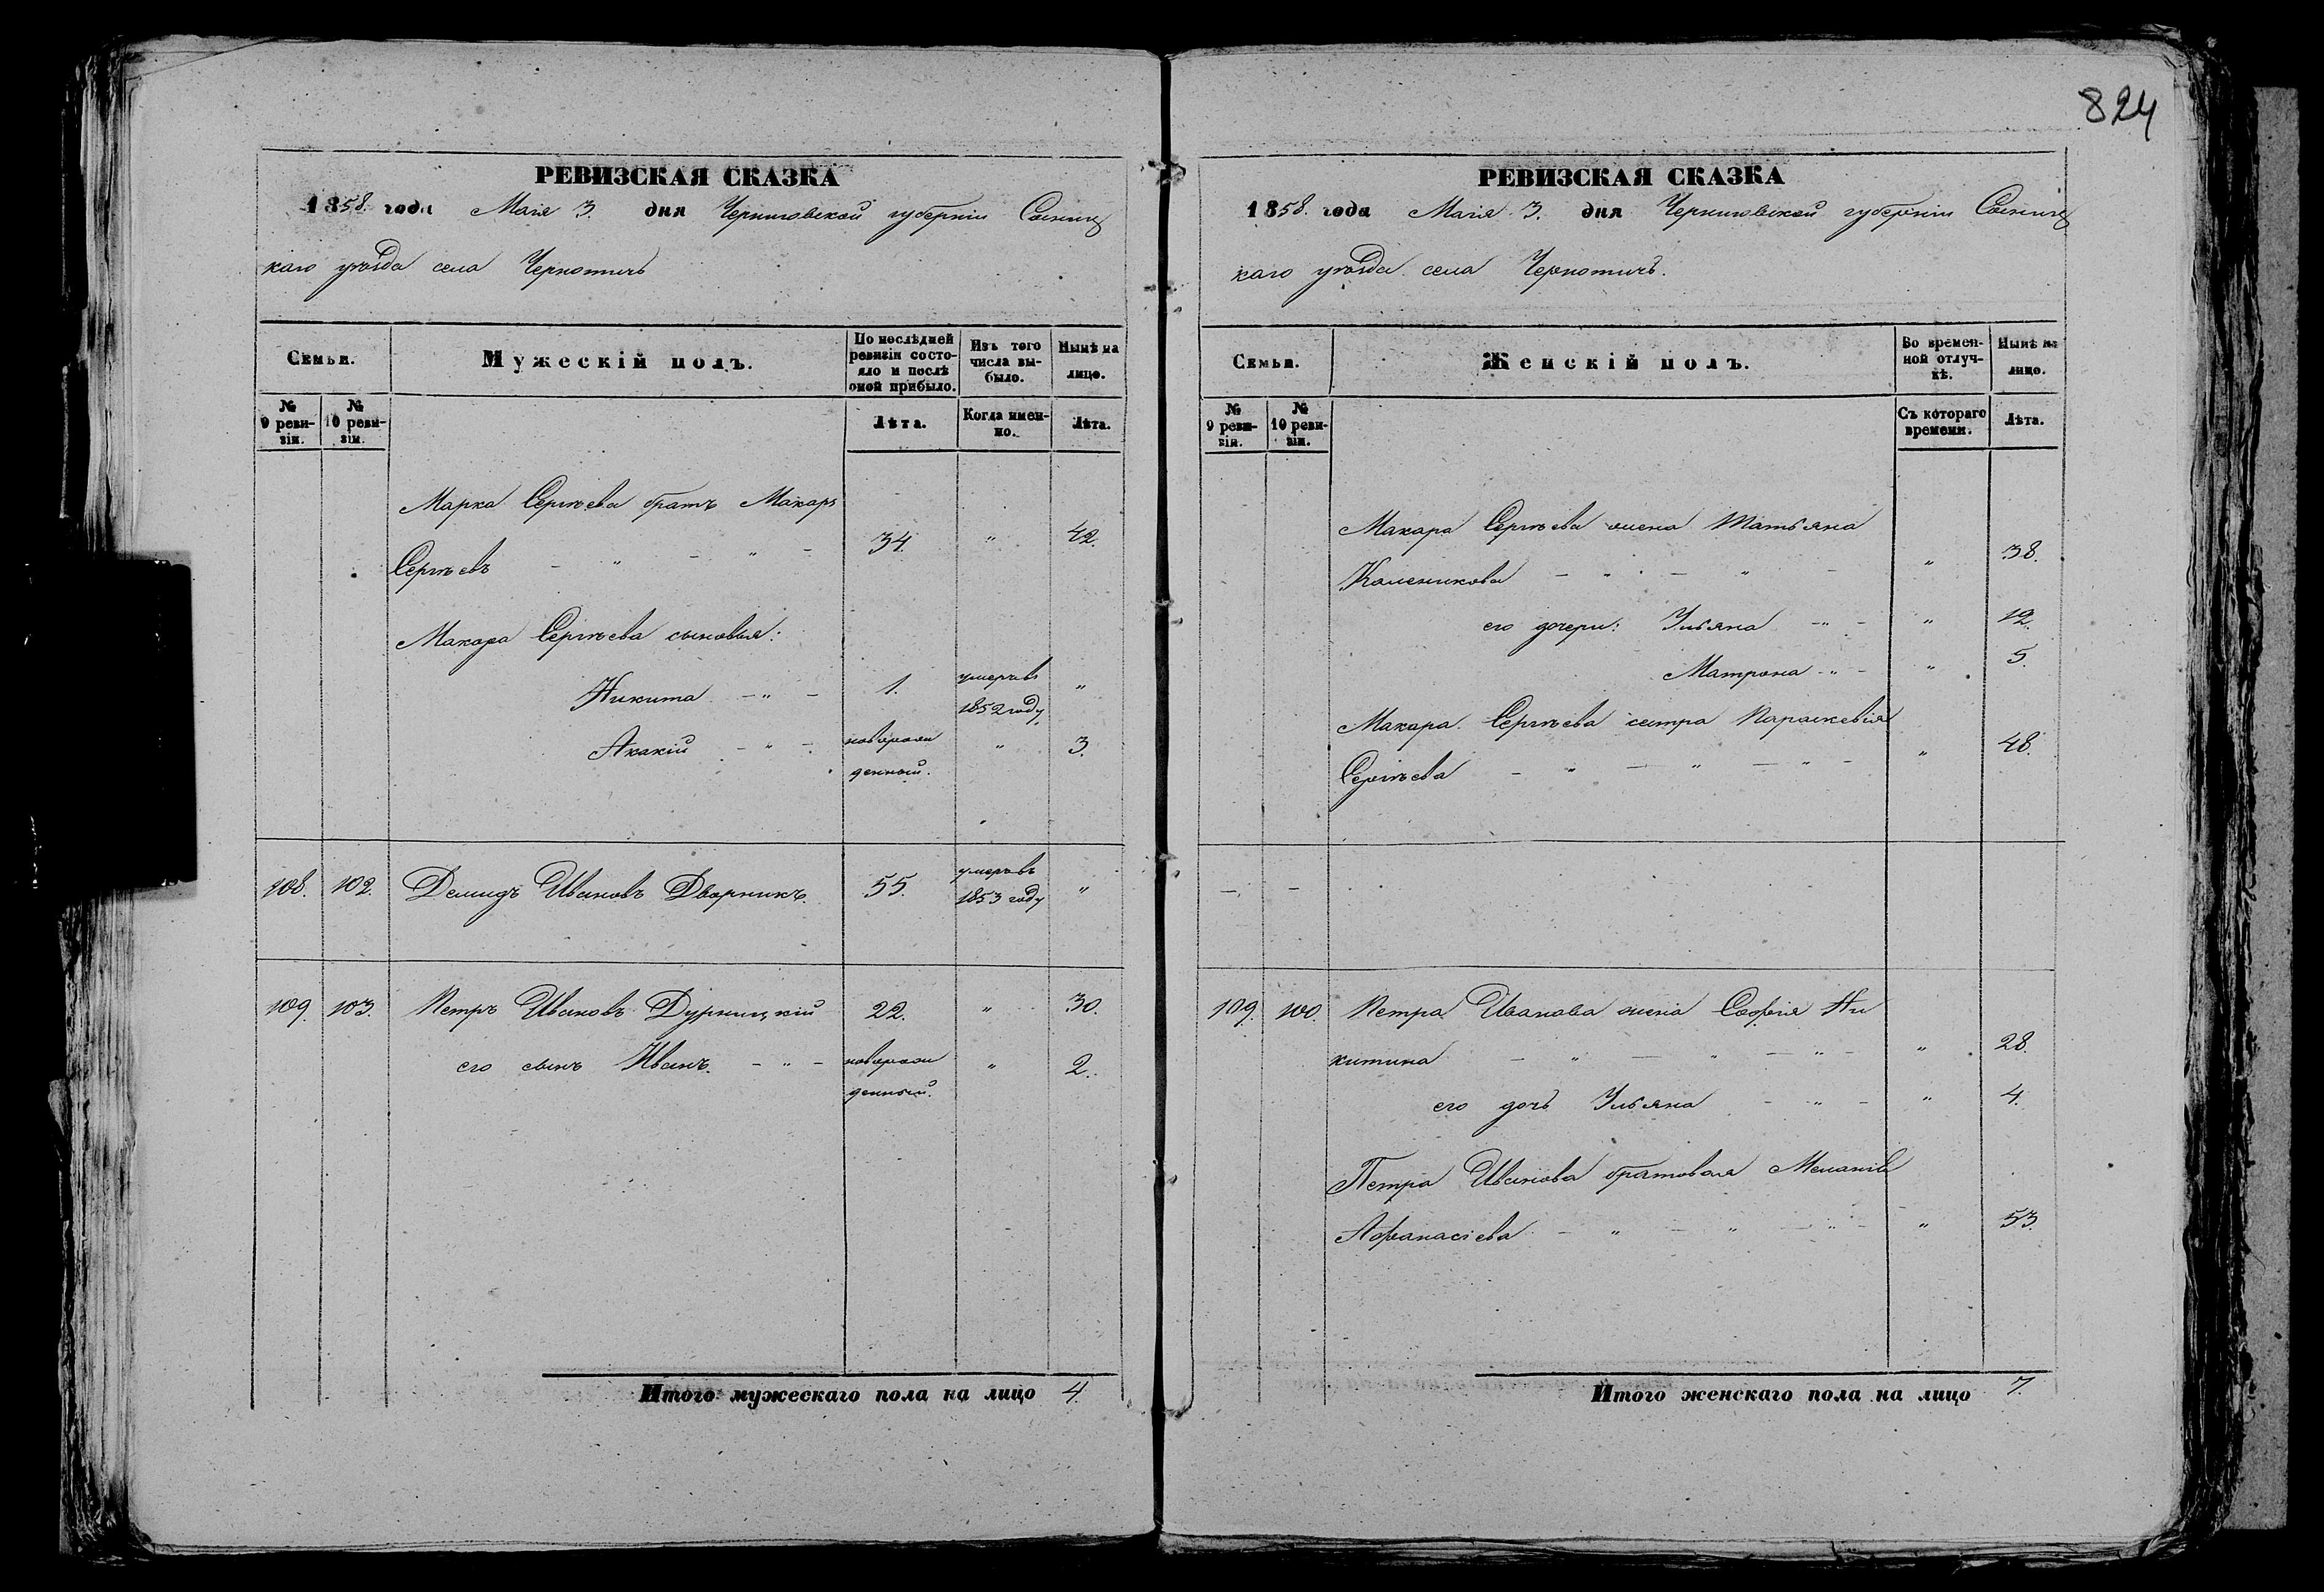 824
РЕВИЗСКАЯ СКАЗКА
1858. года Маія 3. дня Черниговской губерніи Сосниц
каго уѣзда села Чернотичь
Семьи.
Мужескій полъ.
По послѣдней ревизіи состояло и послѣ оной прибыло.
Изъ того числа выбыло.
Нынѣ на лицо.
№ 9 ревизіи.
№ 10 ревизіи.
Лѣта.
Когда именно.
Лѣта.
Марка Сергѣева братъ Макаръ
Сергѣевъ - " - " - 34. " 42.
Макара Сергѣева сыновья:
Никита - " - 1. умеръ въ 1852 году "
Акакій - " - новорожденный. " 3.
108. 102. Демидъ Ивановъ Дворникъ. 55. умеръ въ 1853 году "
109. 103. Петръ Ивановъ Дурницкій 22. " 30.
его сынъ Иванъ. - " - новорожденный. " 2.
Итого мужескаго пола на лицо 4.
РЕВИЗСКАЯ СКАЗКА
1858. года Маія 3. дня Черниговской губерніи Сосниц
каго уѣзда села Чернотичь.
Семьи.
Женскій полъ.
Во временной отлучкѣ.
Нынѣ на лицо.
№ 9 ревизіи.
№ 10 ревизіи.
Съ котораго времени.
Лѣта.
Макара Сергѣева жена Татьяна
Каленикова - " - " - " 38.
его дочери: Ульяна - " - " 12.
Матрона - " - " 5.
Макара Сергѣева сестра Параскевія
Сергѣева - " - " - " - " 48.
- -
109. 100. Петра Иванова жена Софія Ни
китина - " - " - " - " 28.
его дочь Ульяна - " - " 4.
Петра Иванова братовая Меланія
Афанасіева - " - " - " - " 53.
Итого женскаго пола на лицо 7.